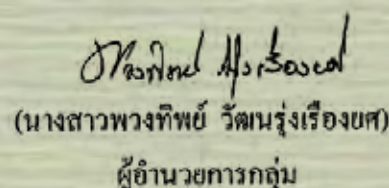 (นางสาวพวงทิพย์ วัฒนรุ่งเรืองยศ)
ผู้อำนวยการกลุ่ม